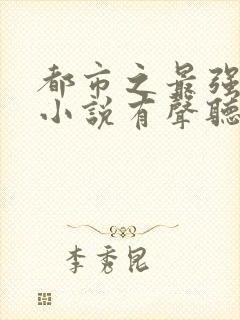 都市之最强
小説有聲聽
李秀昆